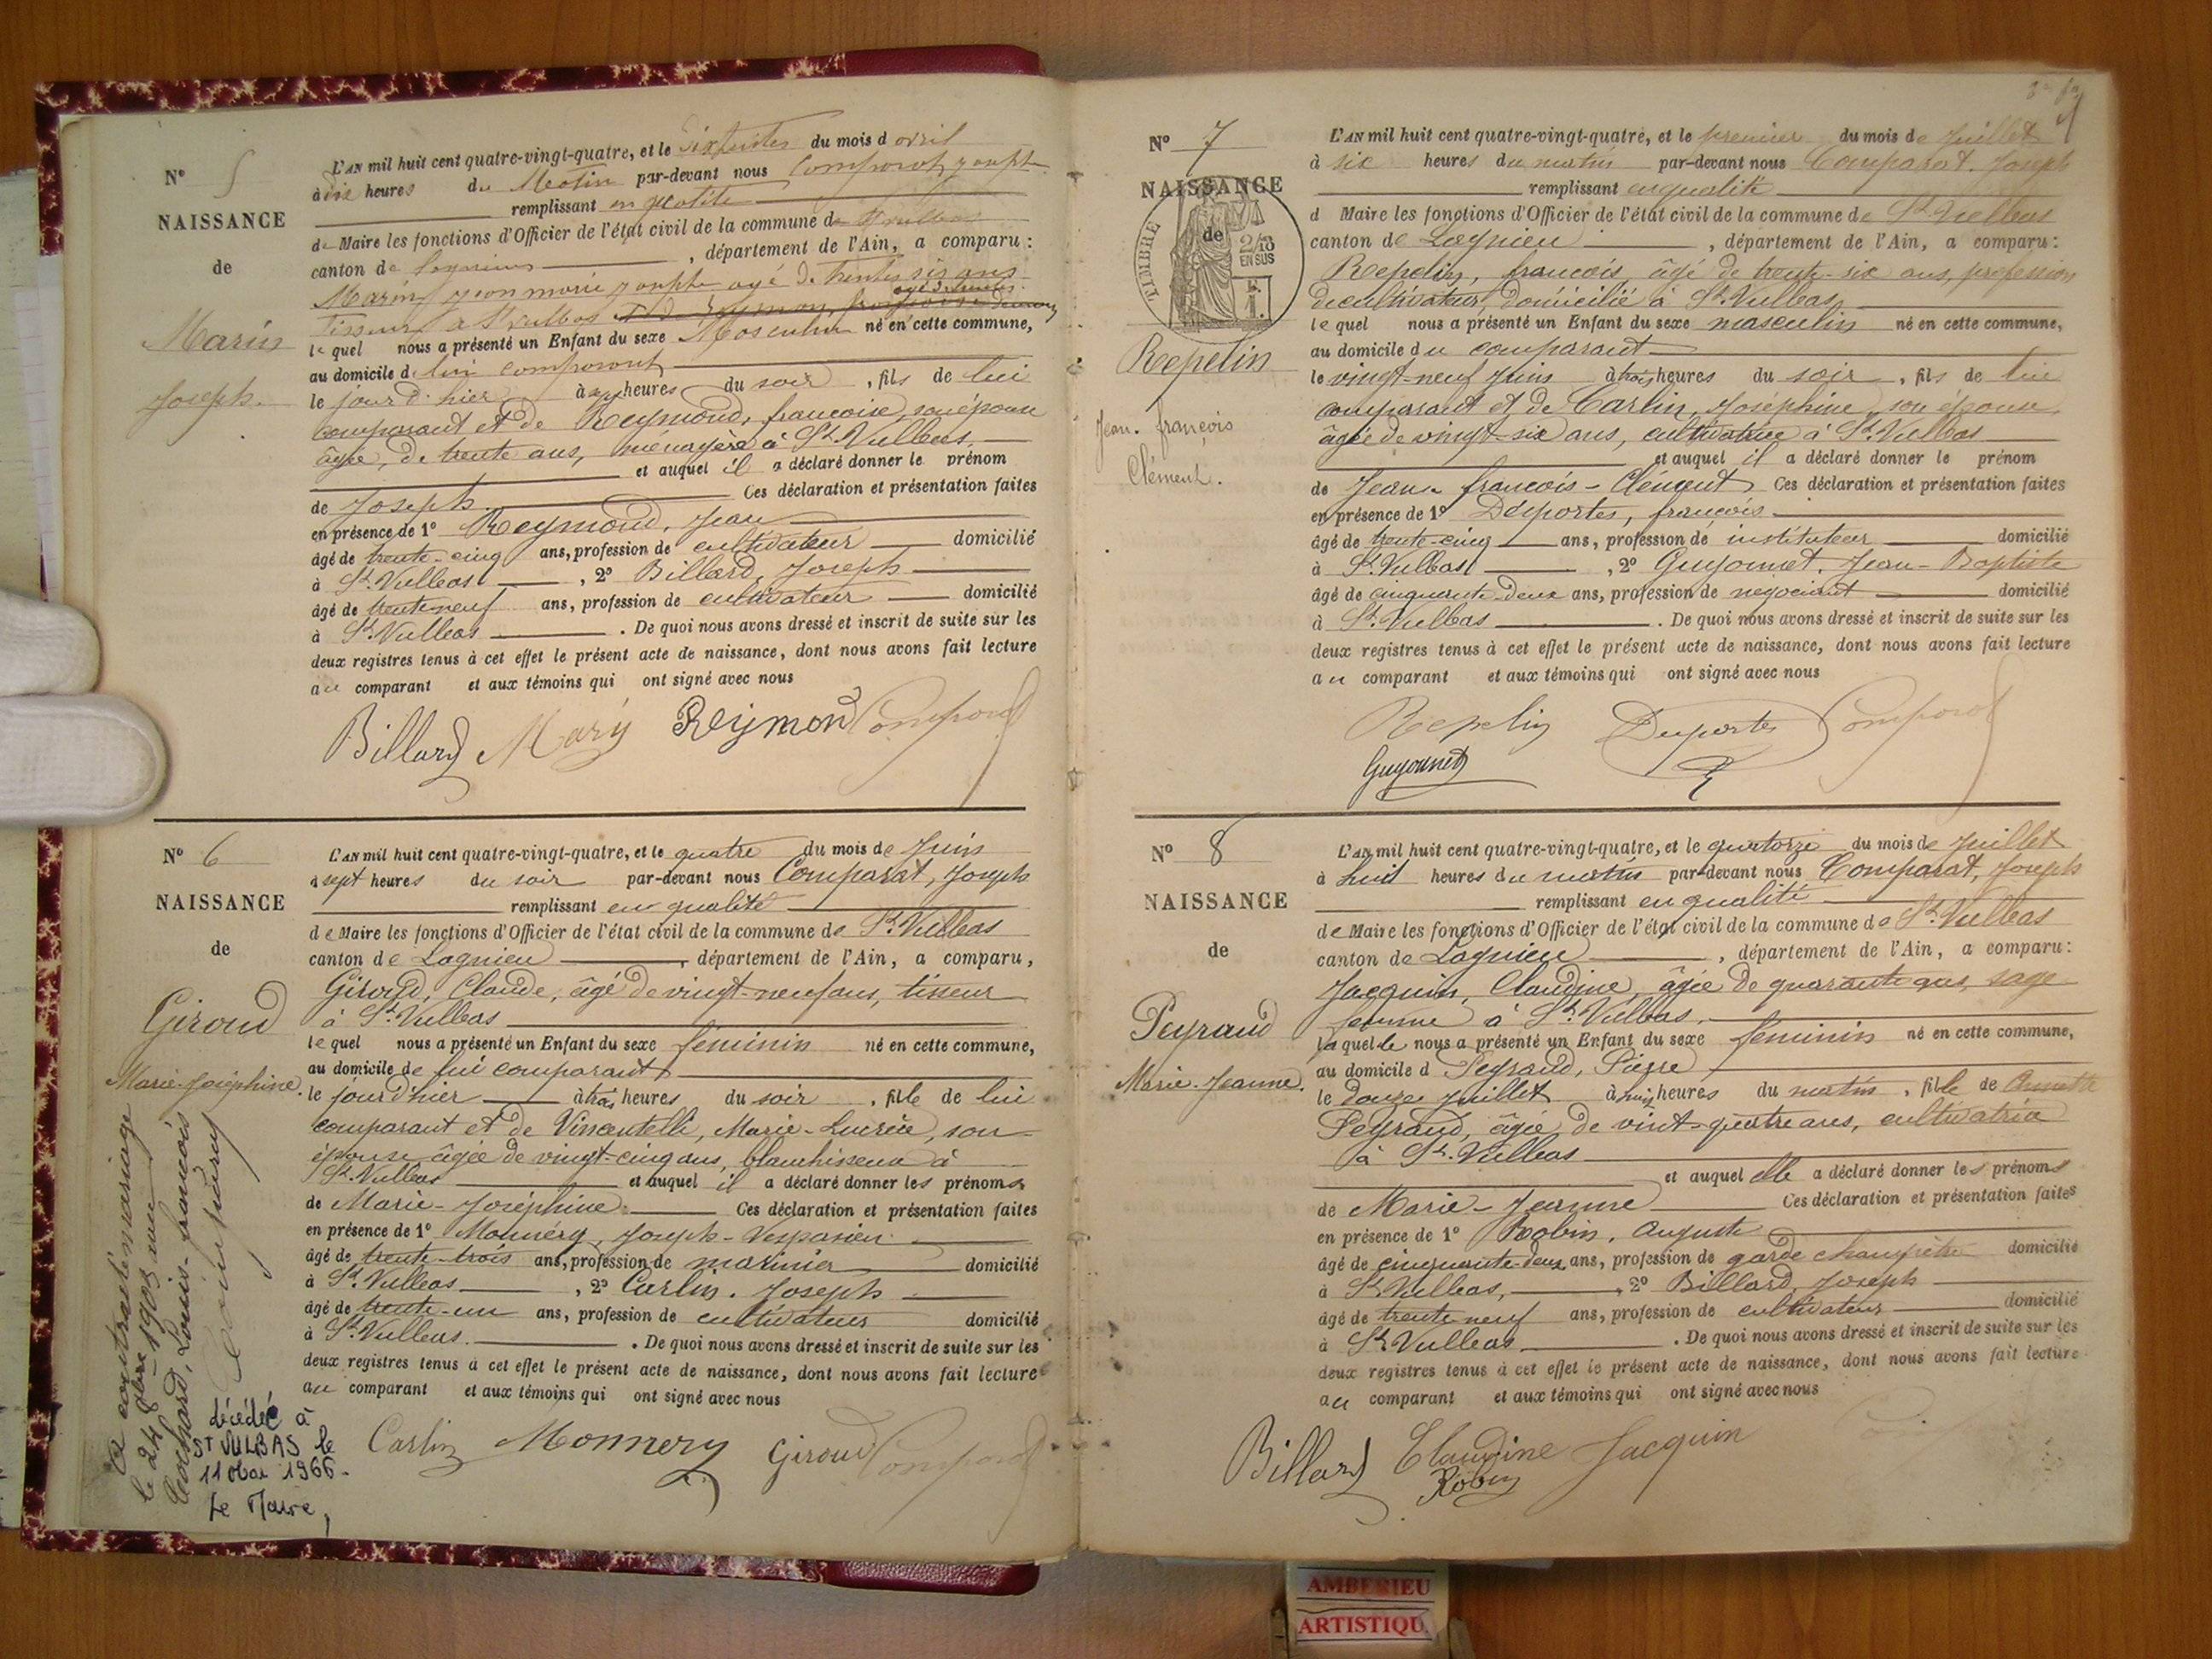 N° 5
NAISSANCE
de
Marin
Joseph.
L'AN mil huit cent quatre-vingt-quatre, et le du mois d avril
à dix heures du Matin par-devant nous Comparat Joseph
remplissant en qualité
de Maire les fonctions d'Officier de l'état civil de la commune de St Vulbas
canton de Lagnieu, département de l'Ain, a comparu :
Marin Jean marie Joseph agé de trente six ans
Tisseur a St Vulbas
lequel nous a présenté un Enfant du sexe Masculin né en cette commune,
au domicile de lui comparant
le jour d'hier à heures du soir, fils de lui
comparant et de Reymond, francoise, son épouse
âgée, de trente ans, ménagère à St. Vulbas.
et auquel il a déclaré donner le prénom
de Joseph. Ces déclaration et présentation faites
en présence de 1° Reymond, Jean
âgé de trente-cinq ans, profession de cultivateur domicilié
à St. Vulbas, 2° Billard, Joseph
âgé de trente neuf ans, profession de cultivateur domicilié
à St. Vulbas. De quoi nous avons dressé et inscrit de suite sur les
deux registres tenus à cet effet le présent acte de naissance, dont nous avons fait lecture
au comparant et aux témoins qui ont signé avec nous
Billard Marin Reymond Comparat
N° 6
NAISSANCE
de
Giroud
Marie-Joséphine.
L'AN mil huit cent quatre-vingt-quatre, et le quatre du mois de Juin
à sept heures du soir par-devant nous Comparat, Joseph
remplissant en qualité
de Maire les fonctions d'Officier de l'état civil de la commune de St. Vulbas
canton de Lagnieu, département de l'Ain, a comparu,
Giroud, Claude, âgé de vingt-neuf ans, tisseur
à St. Vulbas
lequel nous a présenté un Enfant du sexe féminin né en cette commune,
au domicile de lui comparant
le jour d'hier à trois heures du soir, fille de lui
comparant et de Marie-Lucrèce, son
épouse âgée de vingt-cinq ans, blanchisseuse à
St. Vulbas et auquel il a déclaré donner les prénoms
de Marie-Joséphine. Ces déclaration et présentation faites
en présence de 1° Monnery, Joseph-Vespasien
âgé de trente-trois ans, profession de marinier domicilié
à St. Vulbas, 2° Carlin. Joseph
âgé de trente-un ans, profession de cultivateur domicilié
à St. Vulbas. De quoi nous avons dressé et inscrit de suite sur les
deux registres tenus à cet effet le présent acte de naissance, dont nous avons fait lecture
au comparant et aux témoins qui ont signé avec nous
Carlin Monnery Giroud Comparat
A contracté mariage
le 24 9bre 1903 avec
Louis-francois
décédée à
ST VULBAS le
11 Mai 1966-
Le Maire,
N° 7
NAISSANCE
de
TIMBRE
2/10
EN SUS
Repelin
Jean-françois
Clément.
L'AN mil huit cent quatre-vingt-quatre, et le premier du mois de Juillet
à six heures du matin par-devant nous Comparat. Joseph
remplissant en qualité
d Maire les fonctions d'Officier de l'état civil de la commune de St. Vulbas
canton de Lagnieu, département de l'Ain, a comparu :
Repelin, francois, âgé de trente-six ans, profession
de cultivateur, domicilié à St. Vulbas
lequel nous a présenté un Enfant du sexe masculin né en cette commune,
au domicile du comparant
le vingt-neuf Juin à trois heures du soir, fils de lui
comparant et de Carlin, Joséphine, son épouse
âgée de vingt-six ans, cultivatrice à St. Vulbas
et auquel il a déclaré donner le prénom
de Jean-francois-Clément Ces déclaration et présentation faites
en présence de 1° Duportes, françois.
âgé de trente-cinq ans, profession de instituteur domicilié
à St. Vulbas, 2° Guyonnet. Jean-Baptiste
âgé de cinquante-deux ans, profession de négociant domicilié
à St. Vulbas. De quoi nous avons dressé et inscrit de suite sur les
deux registres tenus à cet effet le présent acte de naissance, dont nous avons fait lecture
au comparant et aux témoins qui ont signé avec nous
Repelin Duportes Comparat
Guyonnet
N° 8
NAISSANCE
de
Peyraud
Marie-Jeanne.
L'AN mil huit cent quatre-vingt-quatre, et le quatorze du mois de Juillet
à huit heures du matin par-devant nous Comparat, Joseph
remplissant en qualité
de Maire les fonctions d'Officier de l'état civil de la commune de St. Vulbas
canton de Lagnieu, département de l'Ain, a comparu :
Jacquin, Claudine, âgée de quarante ans, sage
femme à St. Vulbas.
laquelle nous a présenté un Enfant du sexe féminin né en cette commune,
au domicile d Peyraud, Pierre
le douze Juillet à huit heures du matin, fille de Annette
Peyraud, âgée de vint-quatre ans, cultivatrice
à St. Vulbas
et auquel elle a déclaré donner les prénoms
de Marie-Jeanne Ces déclaration et présentation faites
en présence de 1° Robin, Auguste
âgé de cinquante-deux ans, profession de garde champêtre domicilié
à St. Vulbas, 2° Billard, Joseph
âgé de trente neuf ans, profession de cultivateur domicilié
à St. Vulbas. De quoi nous avons dressé et inscrit de suite sur les
deux registres tenus à cet effet le présent acte de naissance, dont nous avons fait lecture
au comparant et aux témoins qui ont signé avec nous
Billard Claudine Jacquin
Robin
AMBERIEU
ARTISTIQU